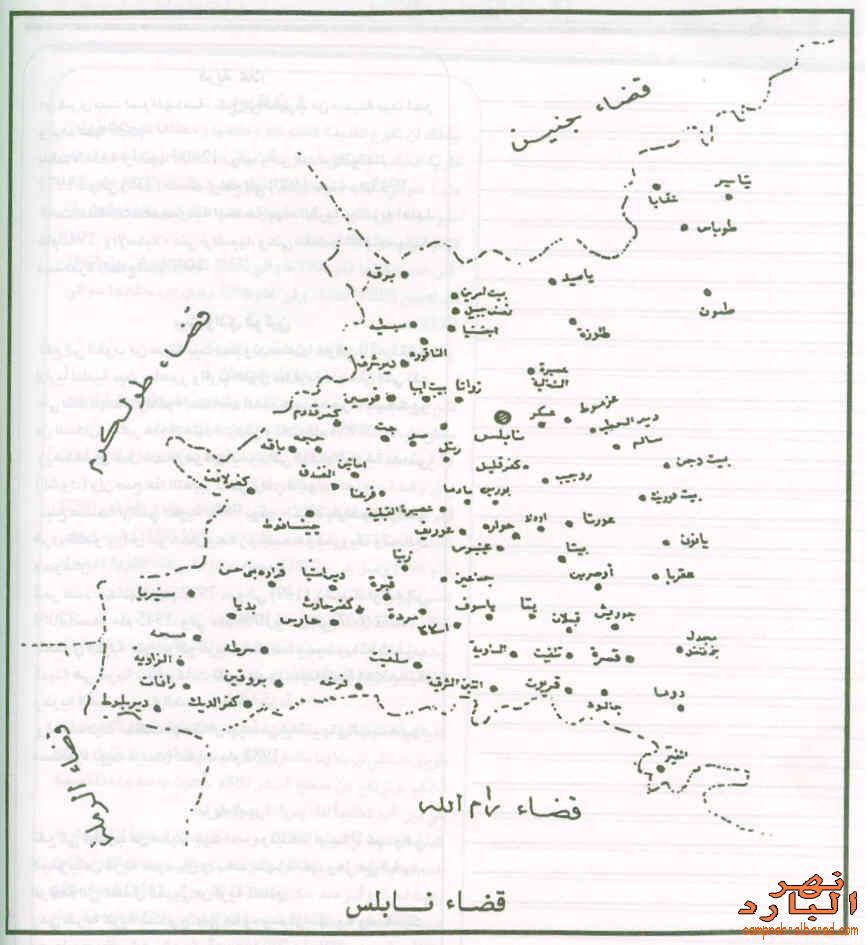 قضاء جنين
تياسير
عقابا
طوباس
برقه
ياصيد
بيت امرين
نصف جبيل
اجنسنيا
طمون
طلوزة
سبسطية
الناقورة
ديرشرف
عصيرة
الشمالية
زواتا
بيت ايبا
قوصين
كفرقدوم
عزموط
عسكر
دير الحطب
سالم
نابلس
جيت
حجه
باقه
تل
بيت دجن
كفرقليل
روجيب
اماتين
الفندق
فرعتا
بورين
مادما
بيت فوريك
عصيرة القبلية
جينصافوط
عوريف
حوارة
اودلا
عورتا
يانون
عينبوس
بيتا
زيتا
جماعين
اوصرين
عقربا
قراوه بني حسن
ديراستيا
قيرة
سنيريا
بديا
كفرحارث
حارس
مردة
اسكاكا
ياسوف
يتما
قبلان
جوريش
مجدل
بني فاضل
مسحه
سرطه
الزاوية
سلفيت
الساوية
تلفيت
قصرة
رافات
بروقين
فرخه
اللبن الشرقية
قريوت
جالود
دوما
ديربلوط
كفرالديك
قضاء طولكرم
قضاء الرملة
قضاء رام الله
قضاء نابلس
نهر
البارد
campnahralbared.com